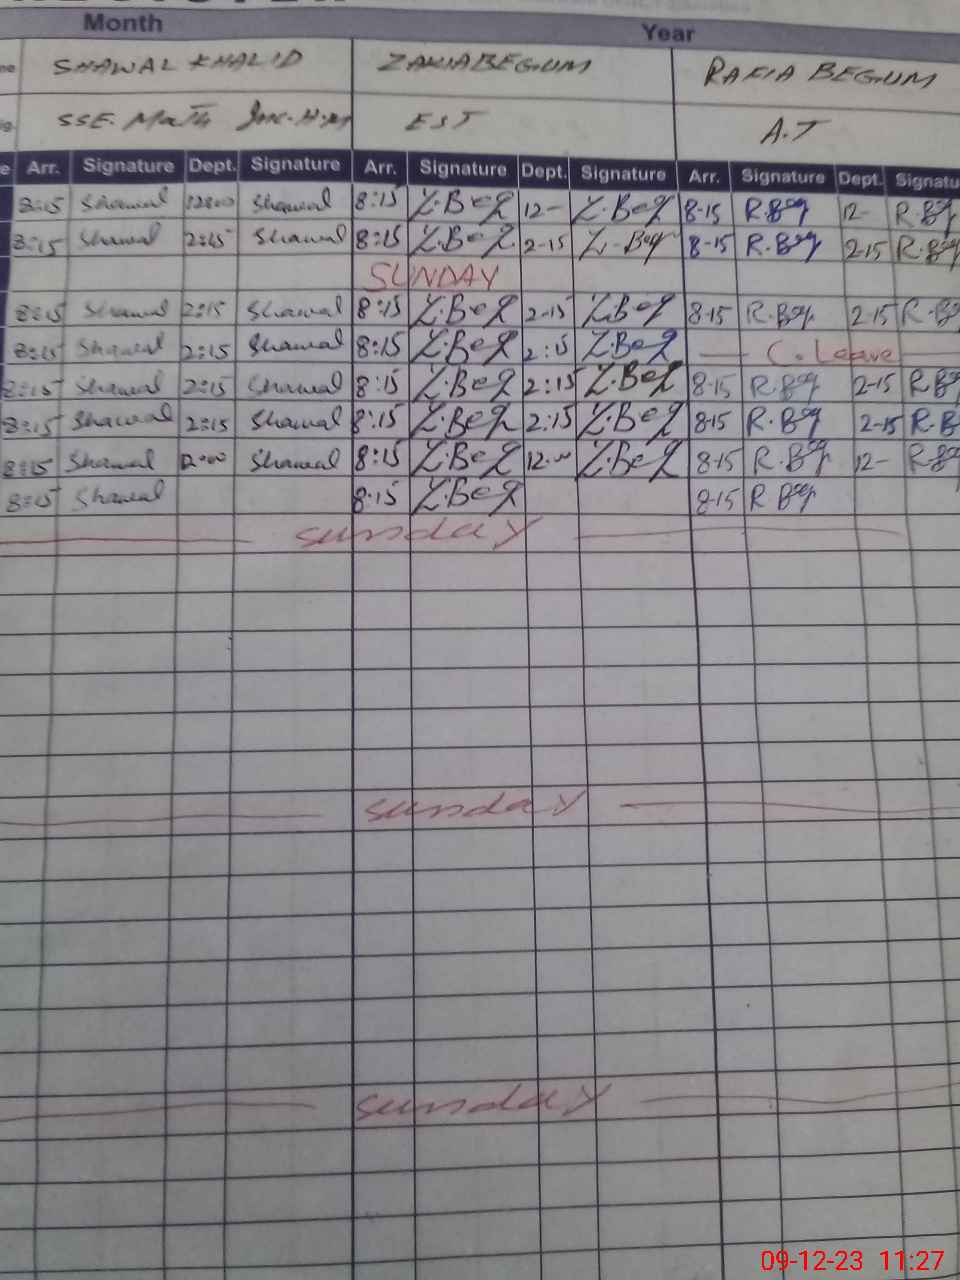 Month Year
SHAWAL KHALID ZAKIA BEGUM RAKIA BEGUM
SSE. Math EST A.T
Arr. Signature Dept. Signature Arr. Signature Dept. Signature Arr. Signature Dept. Signatu
8:15 Shawal 12:00 Shawal 8:15 Z.Beg 12- Z.Beg 8-15 R.Beg 12- R.Beg
8:15 Shawal 2:15 Shawal 8:15 Z.Beg 2-15 Z.Beg 8-15 R.Beg 2-15 R.Beg
SUNDAY
8:15 Shawal 2:15 Shawal 8:15 Z.Beg 2-15 Z.Beg 8-15 R.Beg 2-15 R.Be
8:15 Shawal 2:15 Shawal 8:15 Z.Beg 2:15 Z.Beg C. Leave
8:15 Shawal 2:15 Shawal 8:15 Z.Beg 2:15 Z.Beg 8-15 R.Beg 2-15 R.Be
8:15 Shawal 2:15 Shawal 8:15 Z.Beg 2:15 Z.Beg 8-15 R.Beg 2-15 R.B
8:15 Shawal 12:00 Shawal 8:15 Z.Beg 12:00 Z.Beg 8-15 R.Beg 12- R.Be
8:15 Shawal 8:15 Z.Beg 8-15 R.Beg
sunday
sunday
sunday
09-12-23 11:27